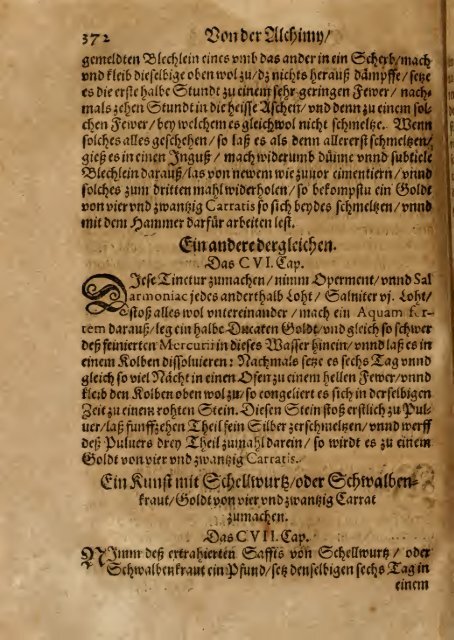 372 Von der Alchimy/
gemeldten Blechlein eines vmb das ander in ein Scherb/mach
vnd kleib dieselbige oben wol zu/dz nichts herauß dämpffe/setze
es die erste halbe Stundt zu einem sehr geringen Fewer/nach-
mals zehen Stundt in die heisse Aschen/vnd denn zu einem sol-
chen Fewer/bey welchem es gleichwol nicht schmeltze. Wenn
solches alles geschehen/so laß es als denn allererst schmeltzen/
gieß es in einen Inguß/mach widerumb dünne vnnd subtiele
Blechlein darauß/las von newem wie zuuor cimentiern/vnnd
solches zum dritten mahl widerholen/so bekompstu ein Goldt
von vier vnd zwantzig Carratis so sich beydes schmeltzen/vnnd
mit dem Hammer darfür arbeiten lest.
Ein andere dergleichen.
Das CVI. Cap.
DIese Tinctur zumachen/nimm Operment/vnnd Sal
armoniac jedes anderthalb Loht/Salniter vj. Loht/
stoß alles wol vntereinander/mach ein Aquam for-
tem darauß/leg ein halbe Ducaten Goldt/vnd gleich so schwer
deß feinierten Mercurii in dieses Wasser hinein/vnnd laß es in
einem Kolben dissoluieren: Nachmals setze es sechs Tag vnnd
gleich so viel Nächt in einen Ofen zu einem hellen Fewer/vnnd
kleib den Kolben oben wol zu/so congeliert es sich in derselbigen
Zeit zu einem rohten Stein. Diesen Stein stoß erstlich zu Pul-
uer/laß funffzehen Theil fein Silber zerschmeltzen/vnnd werff
deß Puluers drey Theil zumahl darein/so wirdt es zu einem
Goldt von vier vnd zwantzig Carratis.
Ein Kunst mit Schellwurtz/oder Schwalben-
kraut/Goldt von vier vnd zwantzig Carrat
zumachen.
Das CVII. Cap.
NImm deß extrahierten Saffts von Schellwurtz/oder
Schwalbenkraut ein Pfund/setz denselbigen sechs Tag in
einem